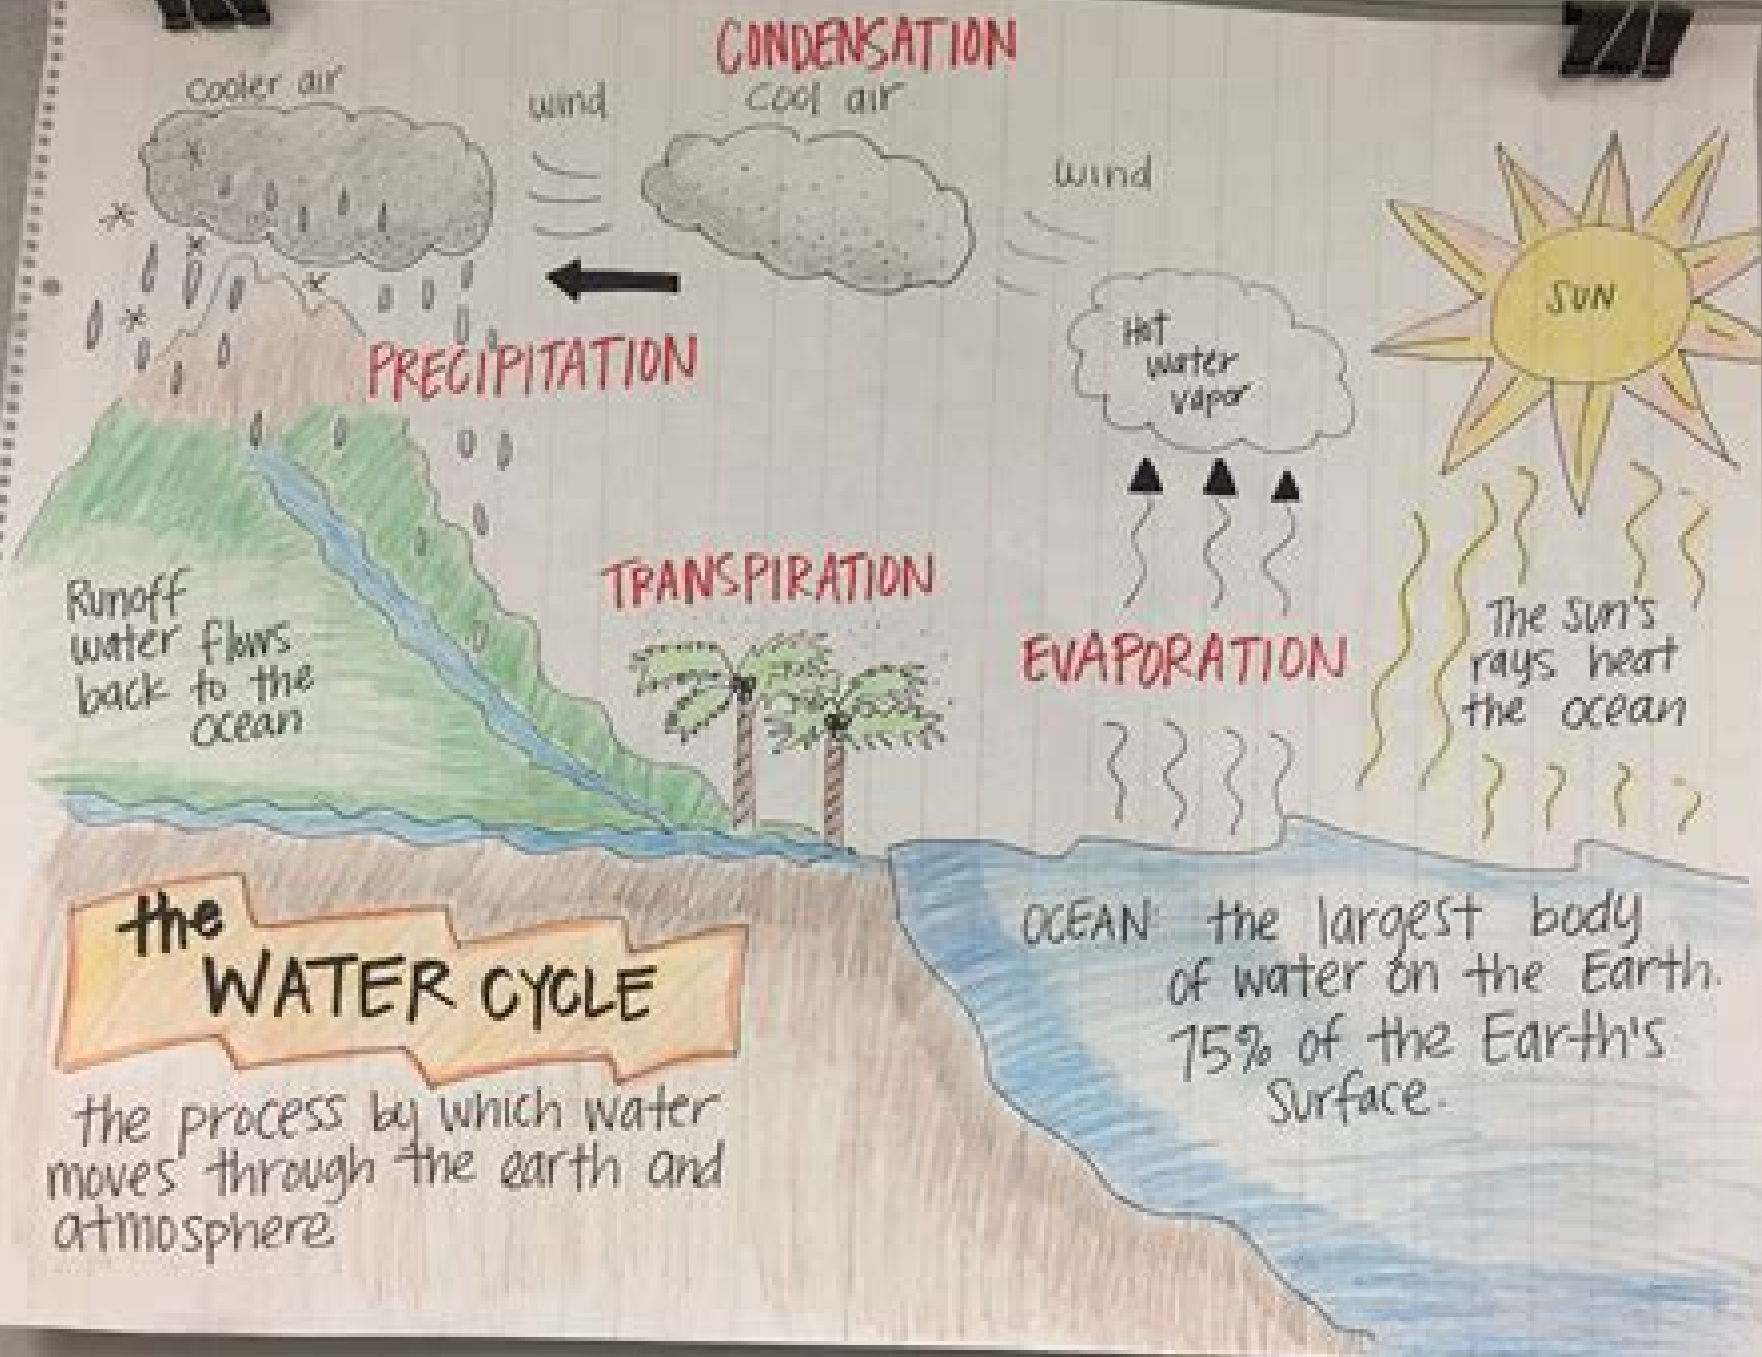 CONDENSATION
cooler air
wind
cool air
wind
SUN
Hot
water
vapor
PRECIPITATION
TRANSPIRATION
EVAPORATION
Runoff
water flows
back to the
ocean
The sun's
rays heat
the ocean
the
WATER CYCLE
the process by which water
moves through the earth and
atmosphere
OCEAN: the largest body
of water on the Earth.
75% of the Earth's
Surface.